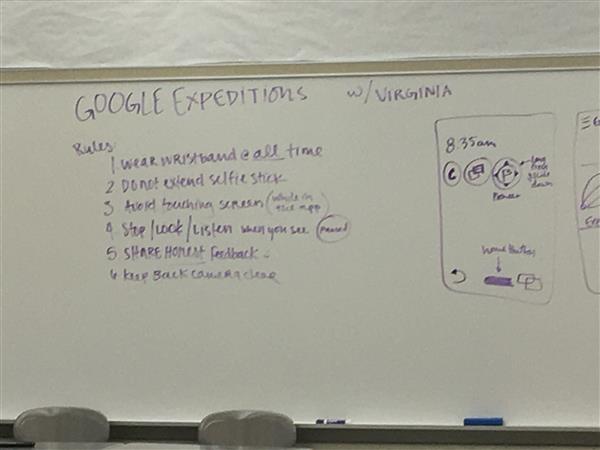 GOOGLE EXPEDITIONS w/ VIRGINIA
Rules:
1 WEAR WRISTBAND @ all time
2 Do not extend selfie stick
3 Avoid touching screen (while in the app)
4 Stop/Look/Listen when you see (paused)
5 SHARE HONEST feedback
6 Keep Back camera clear
8:35am
C
P
Pioneer
down
home button
Exp